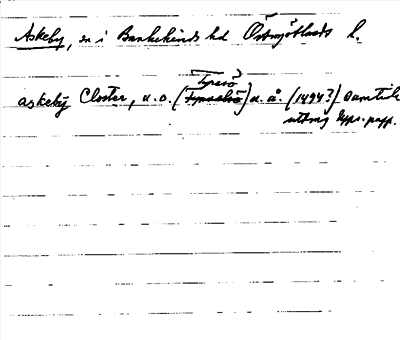 Askeby, sn i Bankekinds hd Östergötlands l.
Tyresö
askeby Closter, u.o. (Tyresö) u.å. (1494?) samtida
utdrag Upps. papp.